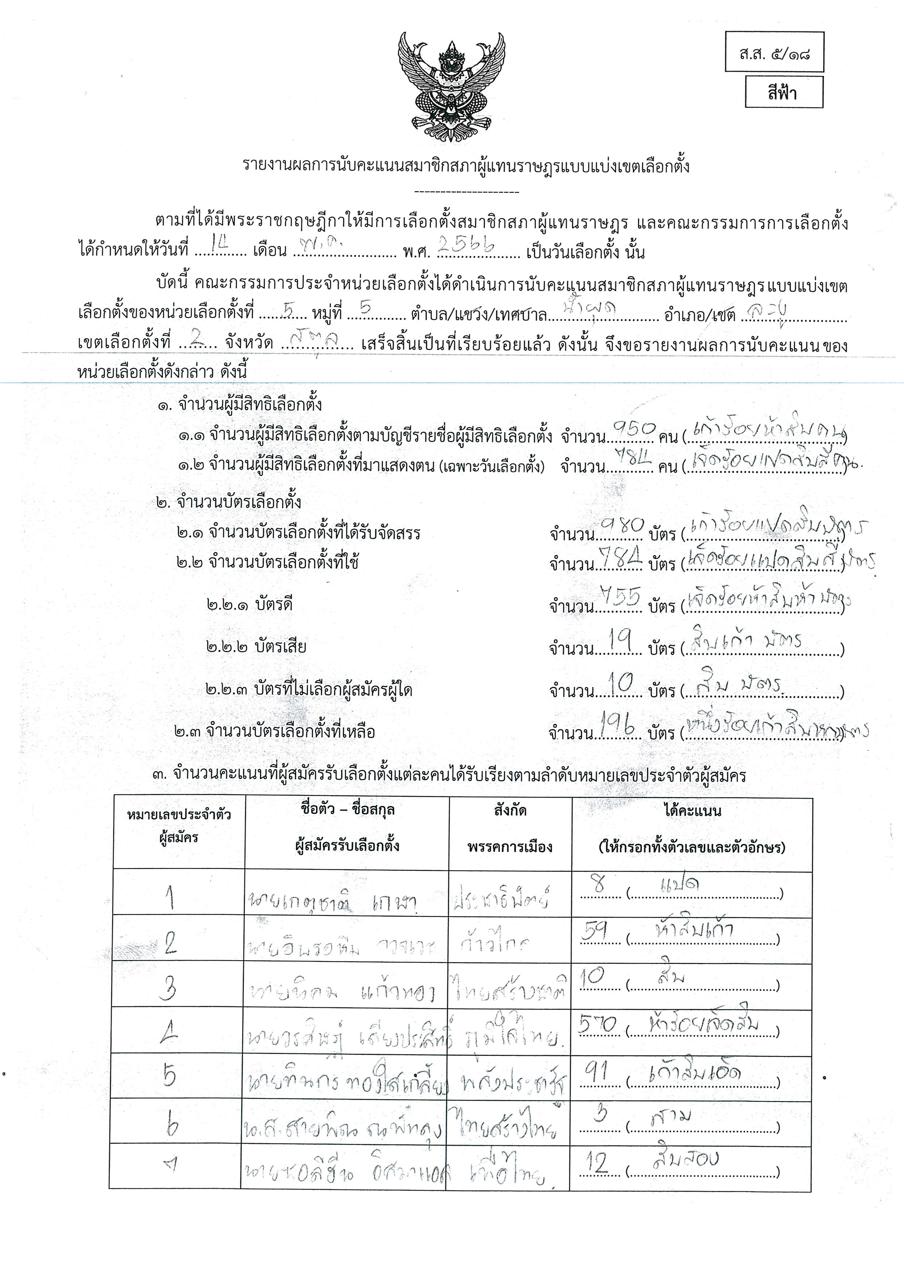 ส.ส. ๕/๑๘
สีฟ้า
รายงานผลการนับคะแนนสมาชิกสภาผู้แทนราษฎรแบบแบ่งเขตเลือกตั้ง
ตามที่ได้มีพระราชกฤษฎีกาให้มีการเลือกตั้งสมาชิกสภาผู้แทนราษฎร และคณะกรรมการการเลือกตั้ง
ได้กำหนดให้วันที่ 14 เดือน พ.ค. พ.ศ. 2566 เป็นวันเลือกตั้ง นั้น
บัดนี้ คณะกรรมการประจำหน่วยเลือกตั้งได้ดำเนินการนับคะแนนสมาชิกสภาผู้แทนราษฎรแบบแบ่งเขต
เลือกตั้งของหน่วยเลือกตั้งที่ 5 หมู่ที่ 5 ตำบล/แขวง/เทศบาล น้ำผุด อำเภอ/เขต ละงู
เขตเลือกตั้งที่ 2 จังหวัด สตูล เสร็จสิ้นเป็นที่เรียบร้อยแล้ว ดังนั้น จึงขอรายงานผลการนับคะแนนของ
หน่วยเลือกตั้งดังกล่าว ดังนี้
๑. จำนวนผู้มีสิทธิเลือกตั้ง
๑.๑ จำนวนผู้มีสิทธิเลือกตั้งตามบัญชีรายชื่อผู้มีสิทธิเลือกตั้ง จำนวน 950 คน (เก้าร้อยห้าสิบคน)
๑.๒ จำนวนผู้มีสิทธิเลือกตั้งที่มาแสดงตน (เฉพาะวันเลือกตั้ง) จำนวน 784 คน (เจ็ดร้อยแปดสิบสี่คน)
๒. จำนวนบัตรเลือกตั้ง
๒.๑ จำนวนบัตรเลือกตั้งที่ได้รับจัดสรร จำนวน 980 บัตร (เก้าร้อยแปดสิบบัตร)
๒.๒ จำนวนบัตรเลือกตั้งที่ใช้ จำนวน 784 บัตร (เจ็ดร้อยแปดสิบสี่บัตร)
๒.๒.๑ บัตรดี จำนวน 755 บัตร (เจ็ดร้อยห้าสิบห้าบัตร)
๒.๒.๒ บัตรเสีย จำนวน 19 บัตร (สิบเก้า บัตร)
๒.๒.๓ บัตรที่ไม่เลือกผู้สมัครผู้ใด จำนวน 10 บัตร (สิบ บัตร)
๒.๓ จำนวนบัตรเลือกตั้งที่เหลือ จำนวน 196 บัตร (หนึ่งร้อยเก้าสิบหกบัตร)
๓. จำนวนคะแนนที่ผู้สมัครรับเลือกตั้งแต่ละคนได้รับเรียงตามลำดับหมายเลขประจำตัวผู้สมัคร
หมายเลขประจำตัวผู้สมัคร ชื่อตัว – ชื่อสกุล ผู้สมัครรับเลือกตั้ง สังกัดพรรคการเมือง ได้คะแนน (ให้กรอกทั้งตัวเลขและตัวอักษร)
1 นายเกตุชาติ เกษา ประชาธิปัตย์ 8 (แปด)
2 ก้าวไกล 59 (ห้าสิบเก้า)
3 นายนิคม แก้วทอง ไทยสร้างชาติ 10 (สิบ)
4 นายวรสิษฎ์ เลียงประสิทธิ์ ภูมิใจไทย 570 (ห้าร้อยเจ็ดสิบ)
5 นายทินกร ทองใสเกลี้ยง พลังประชารัฐ 91 (เก้าสิบเอ็ด)
6 น.ส.สายพิณ ณ พัทลุง ไทยสร้างไทย 3 (สาม)
7 เพื่อไทย 12 (สิบสอง)